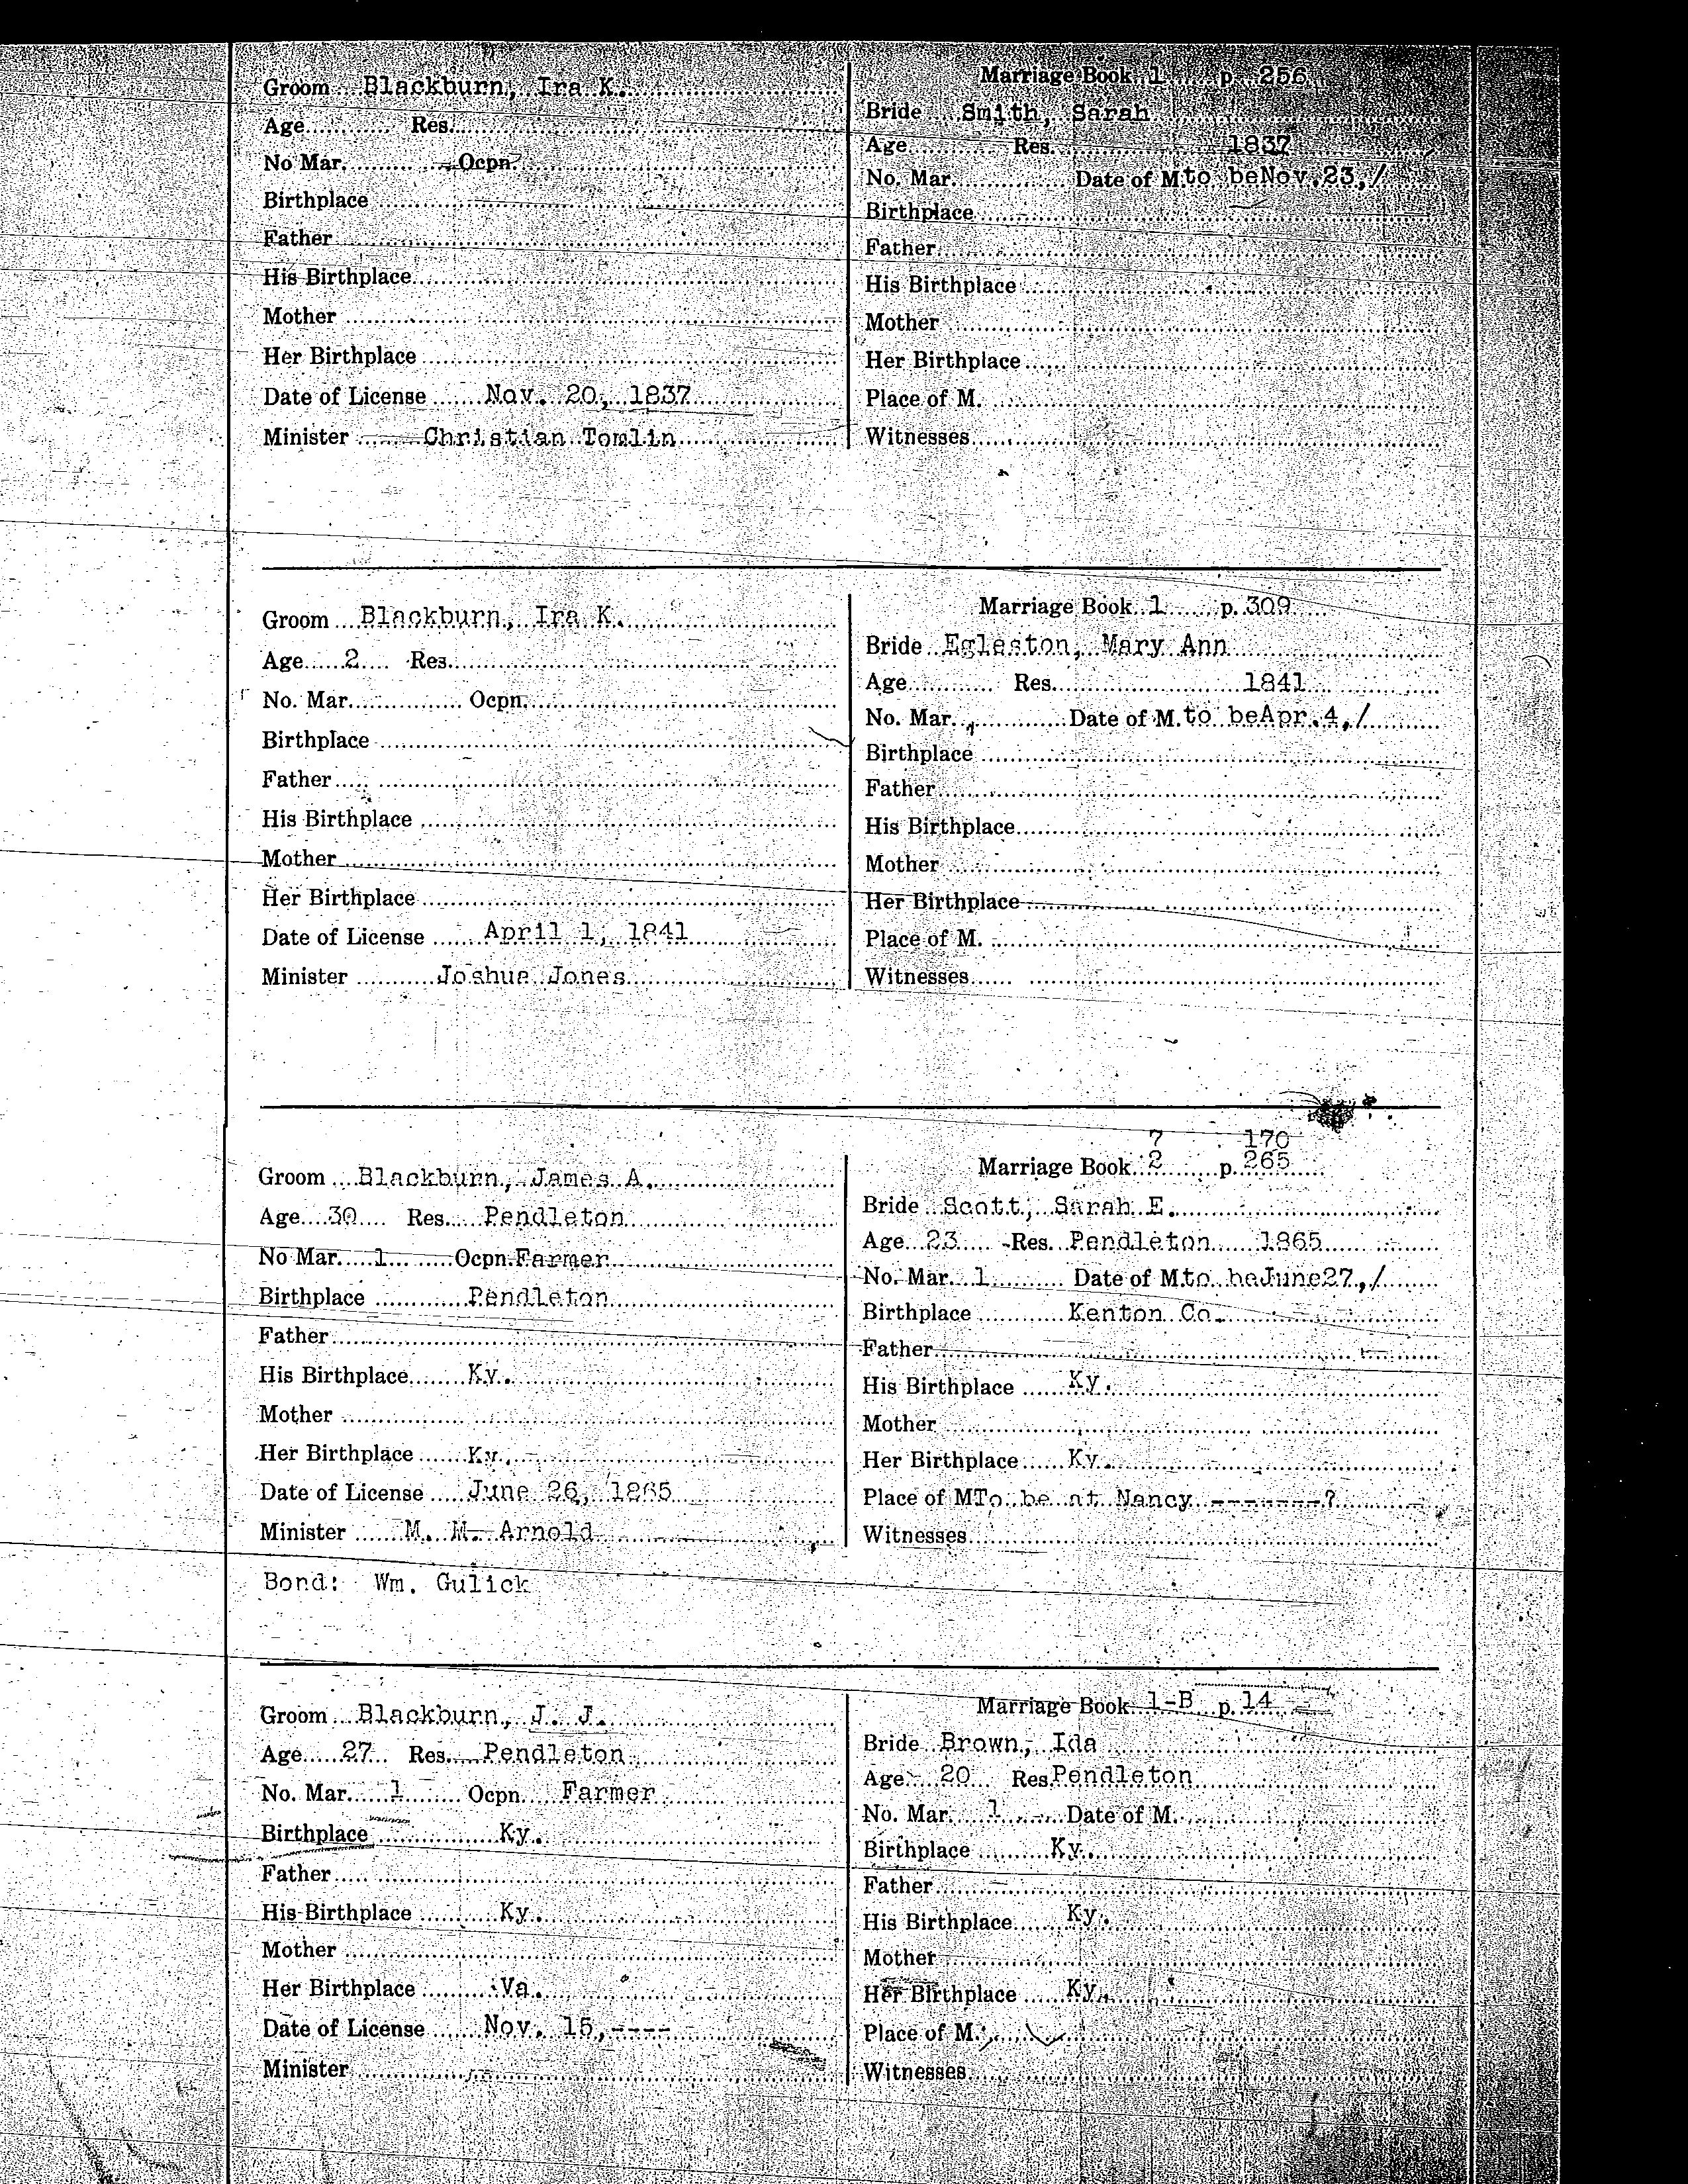 Groom Blackburn, Ira K.
Age Res.
No Mar. Ocpn.
Birthplace
Father
His Birthplace
Mother
Her Birthplace
Date of License Nov. 20, 1837
Minister Christian Tomlin
Marriage Book 1 p. 256
Bride Smith, Sarah
Age Res. 1837
No. Mar. Date of M. to be Nov. 23, /
Birthplace
Father
His Birthplace
Mother
Her Birthplace
Place of M.
Witnesses
Groom Blackburn, Ira K.
Age 2 Res.
No. Mar. Ocpn.
Birthplace
Father
His Birthplace
Mother
Her Birthplace
Date of License April 1, 1841
Minister Joshua Jones
Marriage Book 1 p. 309
Bride Egleston, Mary Ann
Age Res. 1841
No. Mar. Date of M. to be Apr. 4, /
Birthplace
Father
His Birthplace
Mother
Her Birthplace
Place of M.
Witnesses
Groom Blackburn, James A.
Age 30 Res. Pendleton
No Mar. 1 Ocpn. Farmer
Birthplace Pendleton
Father
His Birthplace Ky.
Mother
Her Birthplace Ky.
Date of License June 26, 1865
Minister M. M. Arnold
Bond: Wm. Gulick
7 170
Marriage Book 2 p. 265
Bride Scott, Sarah E.
Age 23 Res. Pendleton 1865
No. Mar. 1 Date of M. to be June 27, /
Birthplace Kenton Co.
Father
His Birthplace Ky.
Mother
Her Birthplace Ky.
Place of M To be at Nancy --------?
Witnesses
Groom Blackburn, J. J.
Age 27 Res. Pendleton
No. Mar. 1 Ocpn. Farmer
Birthplace Ky.
Father
His Birthplace Ky.
Mother
Her Birthplace Va.
Date of License Nov. 15, ----
Minister
Marriage Book 1-B p. 14
Bride Brown, Ida
Age 20 Res Pendleton
No. Mar. 1 Date of M.
Birthplace Ky.
Father
His Birthplace Ky.
Mother
Her Birthplace Ky.
Place of M.
Witnesses